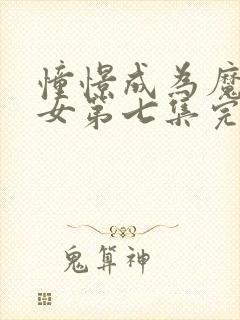 憧憬成為魔
女第七集完
鬼算神